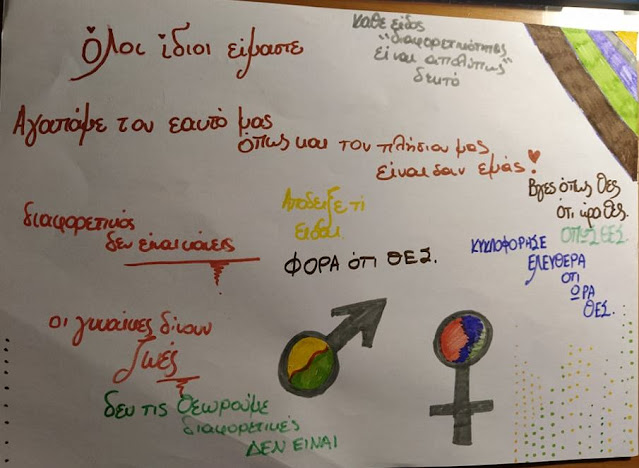 Όλοι ίδιοι είμαστε
κάθε είδος
"διαφορετικότητας
είναι απολύτως"
δεκτό
Αγαπάμε τον εαυτό μας
όπως και τον πλήσιον μας
είναι σαν εμάς!
διαφορετικός
δεν είναι κάνεις
Απόδειξε τί
είσαι
ΦΟΡΑ ότι ΘΕΣ.
Βγες όπως θες
ότι ώρα θες.
ΟΠΩΣ ΘΕΣ
ΚΥΚΛΟΦΟΡΗΣΕ
ΕΛΕΥΘΕΡΑ
ΟΤΙ
ΩΡΑ
ΘΕΣ.
οι γυναίκες δίνουν
ζωές
δεν τις θεωρούμε
διαφορετικές
ΔΕΝ ΕΙΝΑΙ